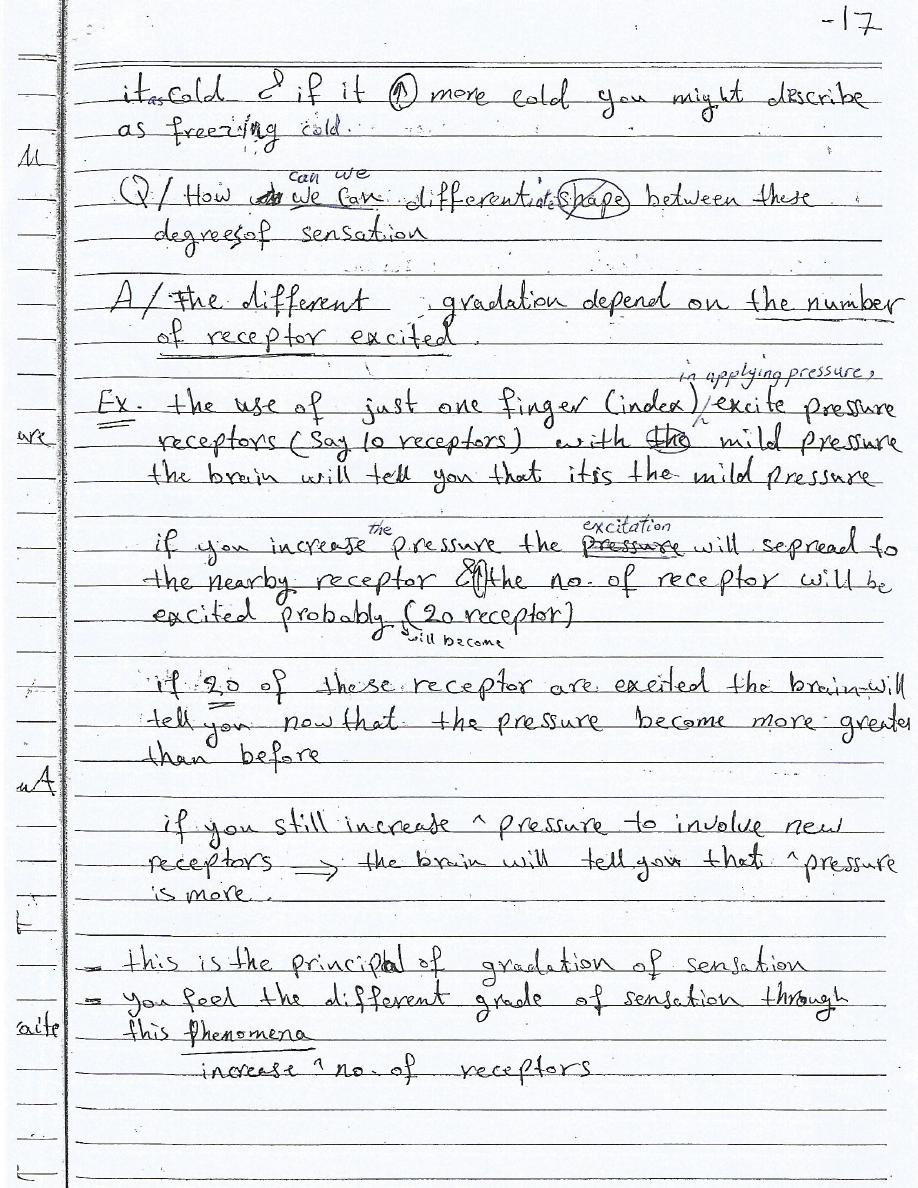 -17
it as cold & if it ↑ more cold you might describe
as freezing cold.
can we
Q/ How we can differentiate shape between these
degrees of sensation
A/ The different gradation depend on the number
of receptor excited.
in applying pressure,
Ex. the use of just one finger (index) excite pressure
receptors (Say 10 receptors) with the mild pressure
the brain will tell you that it is the mild pressure
the excitation
if you increase pressure the pressure will sepread to
the nearby receptor & ↑ the no. of receptor will be
excited probably (20 receptor)
will become
if 20 of these receptor are excited the brain will
tell you now that the pressure become more greater
than before
if you still increase ^ pressure to involve new
receptors → the brain will tell you that ^ pressure
is more.
= this is the principal of gradation of sensation
= you feel the different grade of sensation through
this phenomena
increase ^ no. of receptors
ure